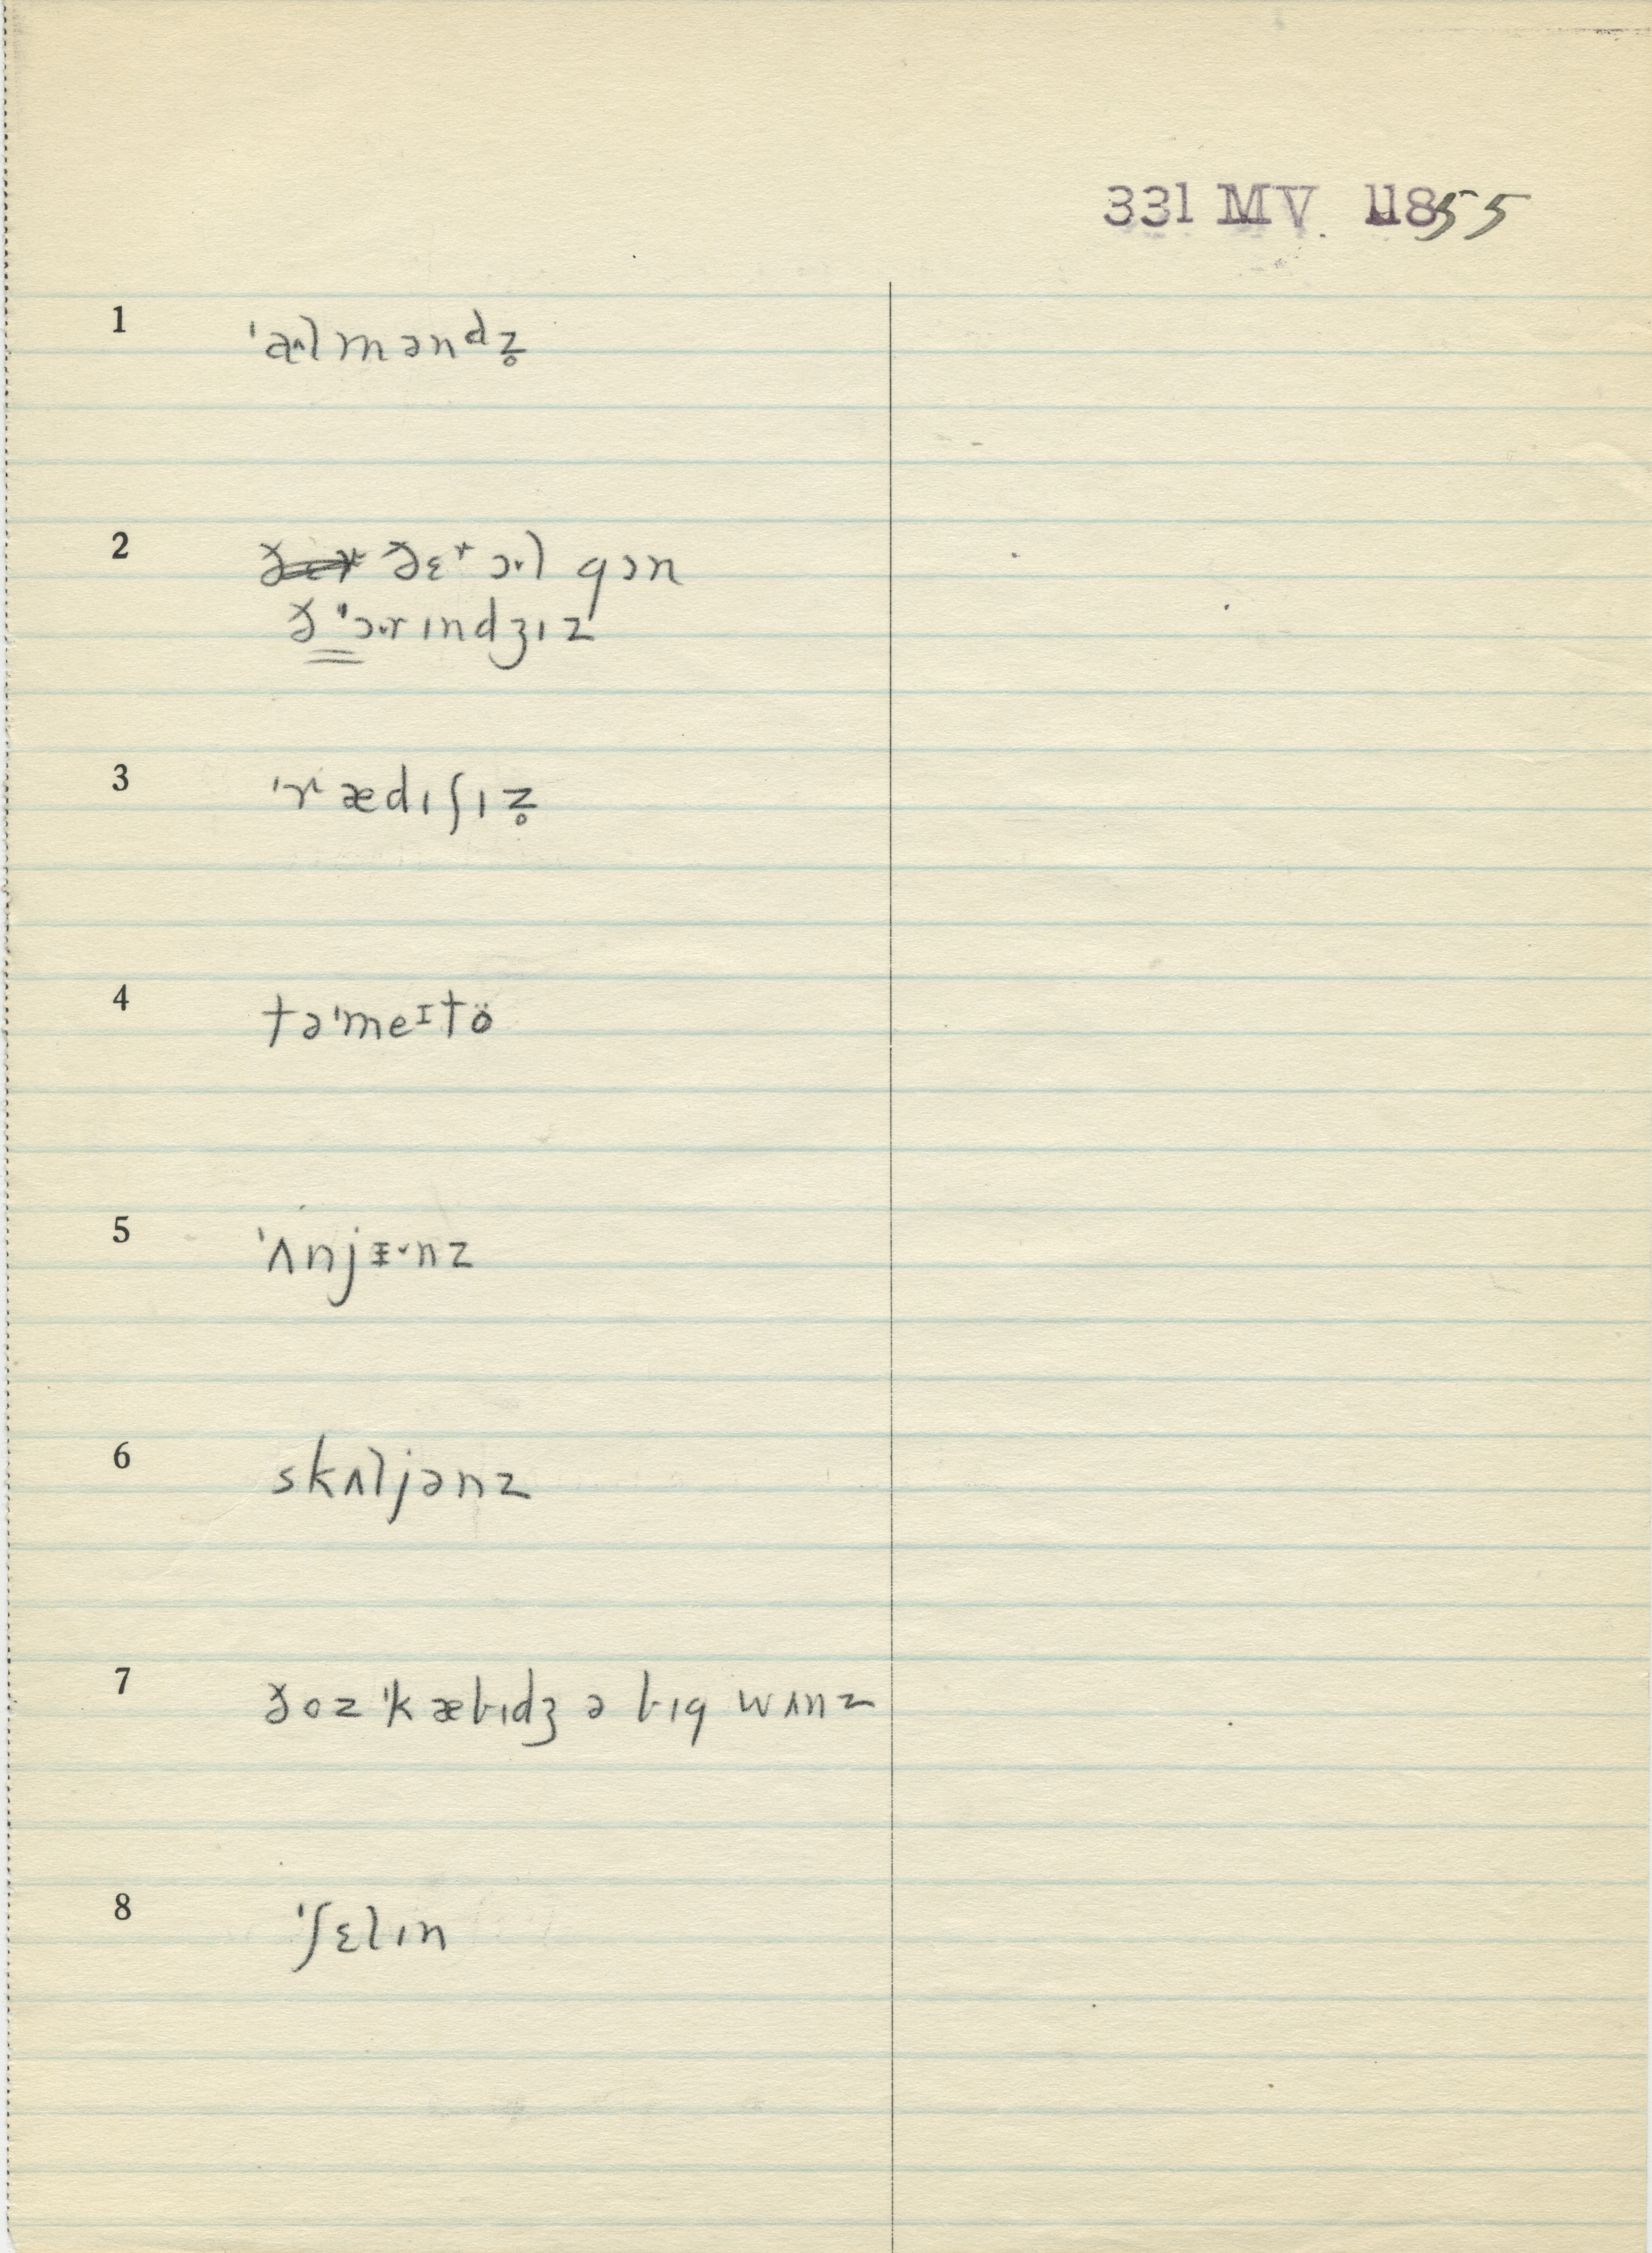 331 MV 11855
1 ˈaˑlmənᵈz̥
2 ðɛɚ ɔˑl gɔn
ðˈɔˑrɪndʒɪz
3 ˈrædɪʃɪz̥
4 təˈmeɪtö
5 ˈʌnjɪ̵ˑnz
6 skʌljənz
7 ðoz ˈkæbɪdʒ ə bɪg wʌnz
8 ˈʃɛlɪn